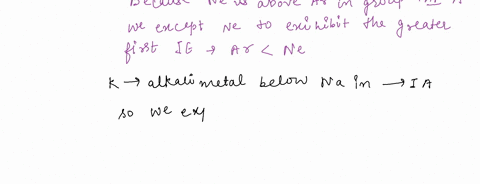 Because Ne is above Ar in group
we except Ne to exihibit the greater
first IE → Ar < Ne
K → alkali metal below Na in → IA
so we exp